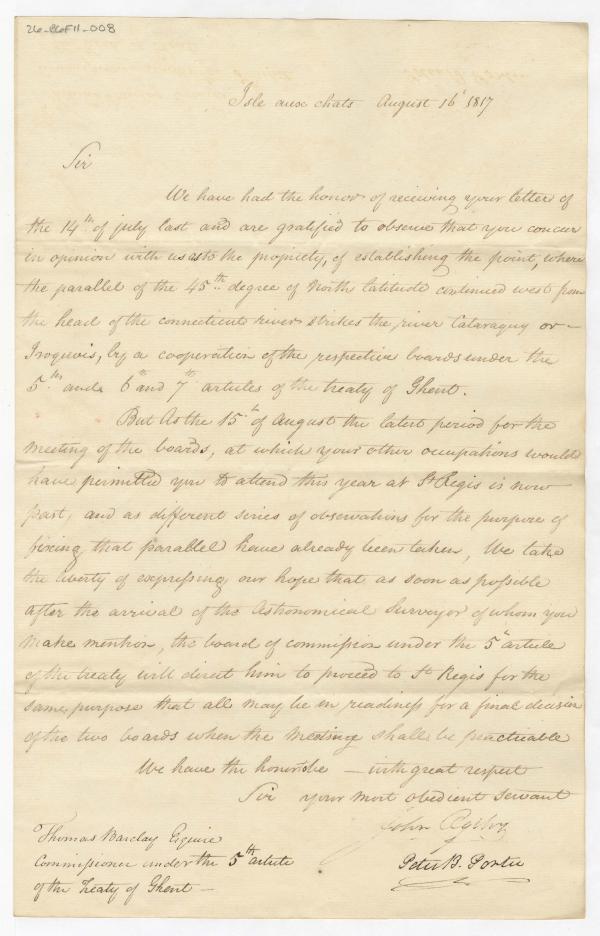 26-B6F11-008
Isle aux chats August 16t 1817
Sir
We have had the honor of receiving your letter of
the 14th of july last and are gratified to observe that you concur
in opinion with us as to the propriety, of establishing the point, where
the parallel of the 45th degree of North latitude continued west from
the head of the connecticut river strikes the river Cataraguy or –
Iroquois, by a cooperation of the respective boards under the
5th and 6th and 7th articles of the treaty of Ghent.
But As the 15th of August the latest period for the
meeting of the boards, at which your other occupations would
have permitted you to attend this year at St Regis is now
past, and as different series of observations for the purpose of
fixing that parallel have already been taken, We take
the liberty of expressing our hope that as soon as possible
after the arrival of the Astronomical Surveyor of whom you
make mention, the board of commission under the 5th article
of the treaty will direct him to proceed to St Regis for the
same purpose that all may be in readiness for a final decision
of the two boards when the meeting shall be practicable
We have the honor to be – with great respect
Sir your most obedient servant
John Ogilvy
Thomas Barclay Esquire
Commissioner under the 5th article
Peter B. Porter
of the Treaty of Ghent –